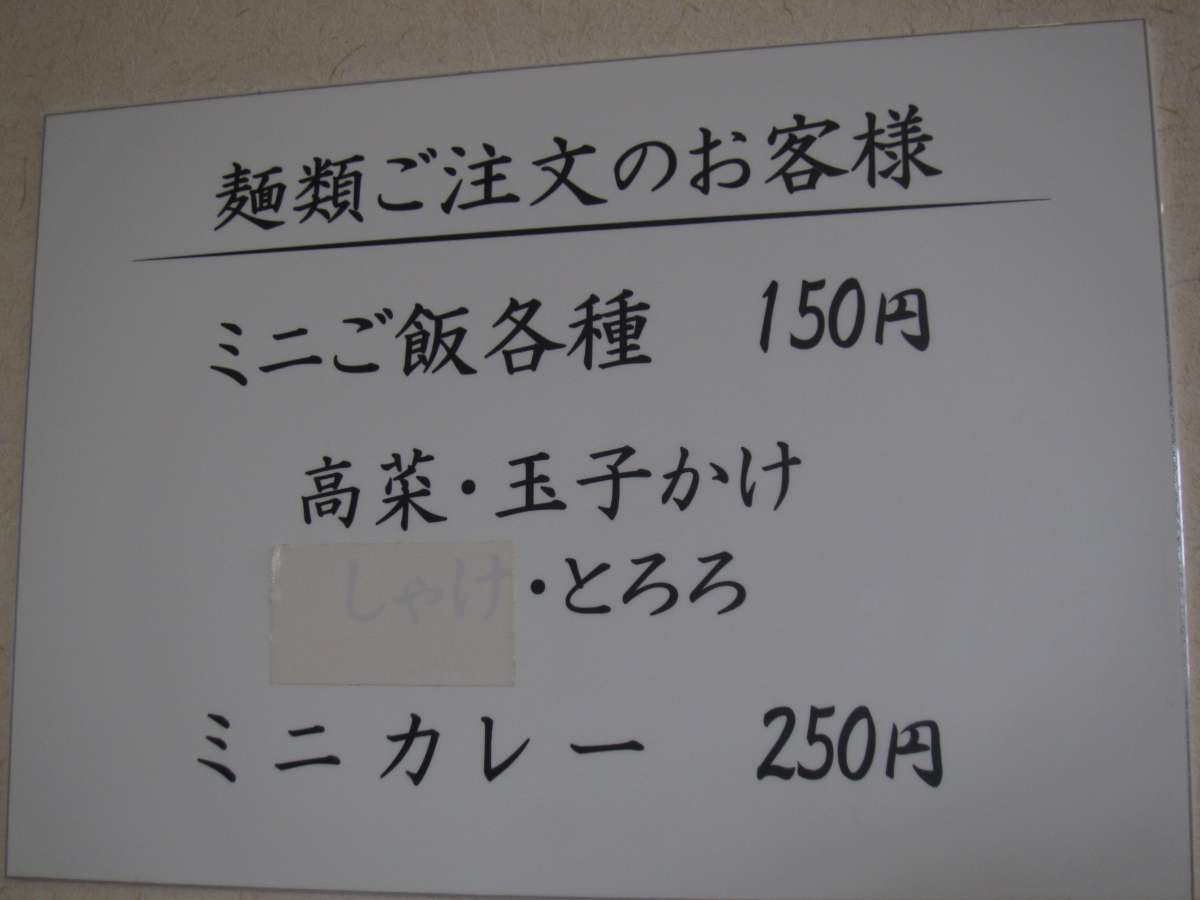 麺類ご注文のお客様
ミニご飯各種 150円
高菜・玉子かけ
しゃけ・とろろ
ミニカレー 250円